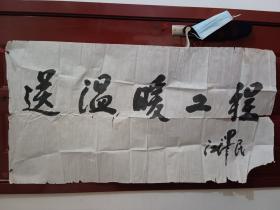 送温暖工程
江泽民